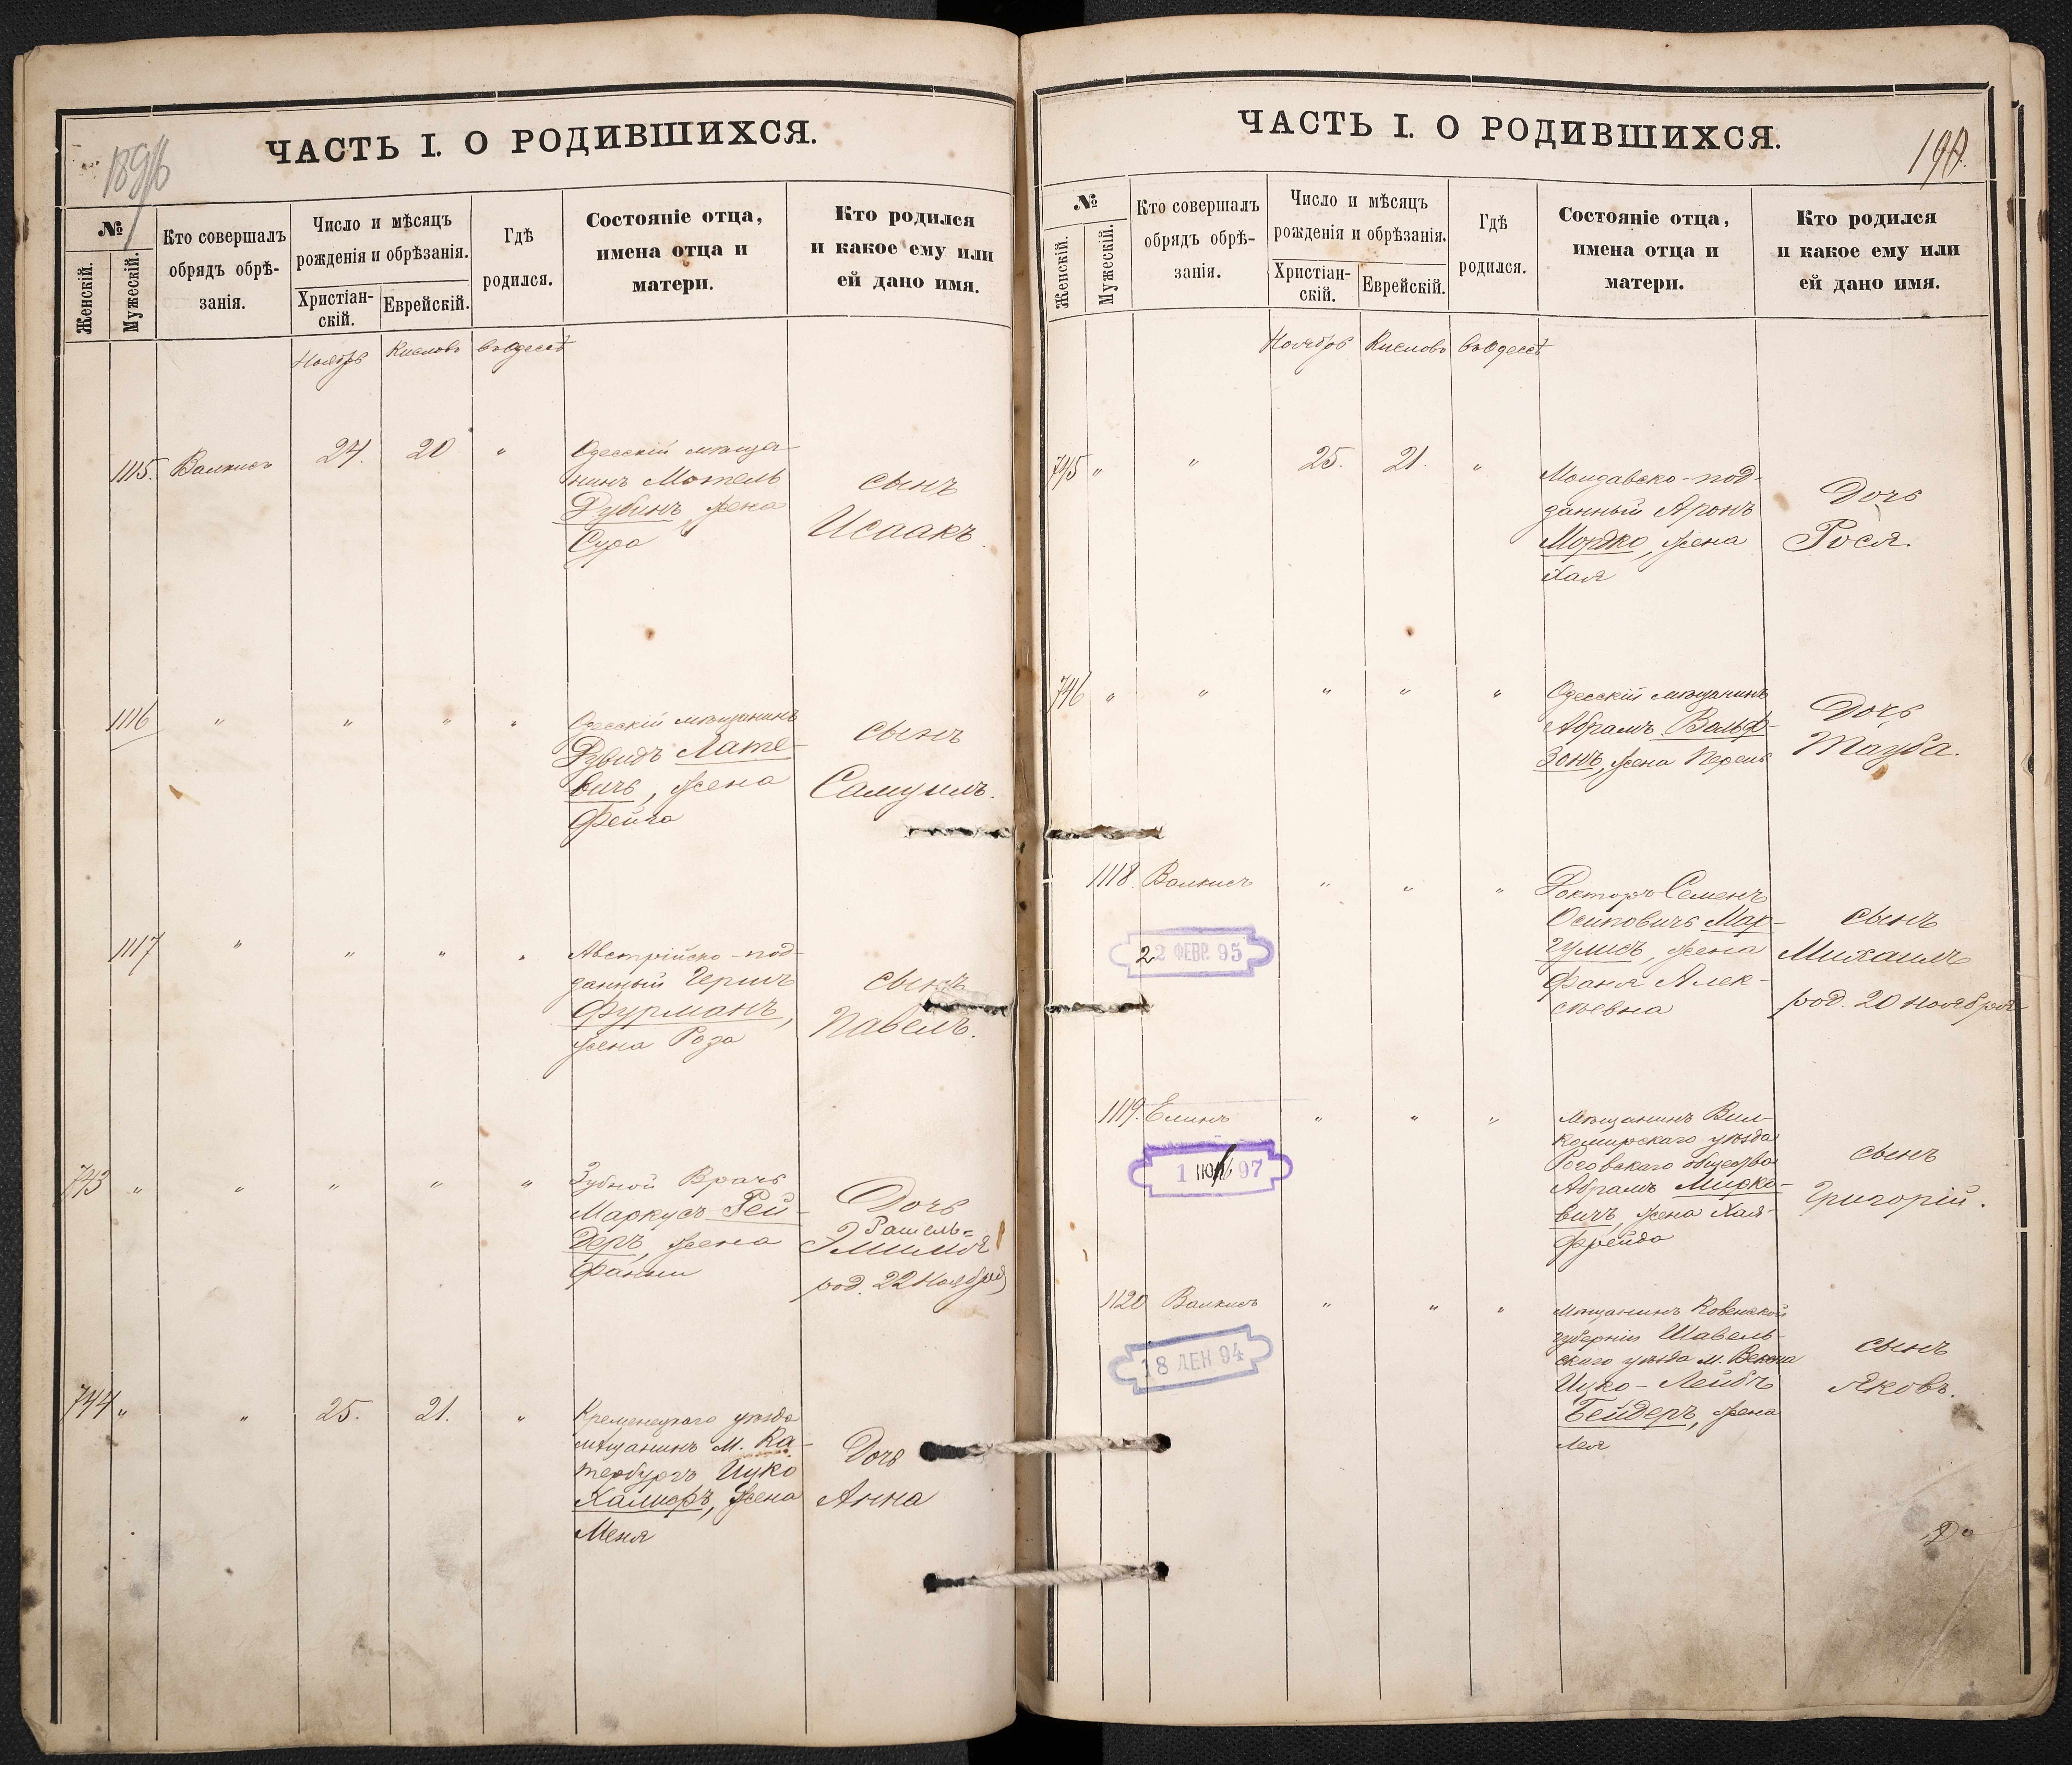 ЧАСТЬ I. О РОДИВШИХСЯ.
№
Женскій.
Мужескій.
Кто совершалъ
обрядъ обрѣ-
занія.
Число и мѣсяцъ
рожденія и обрѣзанія.
Христіан-
скій.
Еврейскій.
Гдѣ
родился.
Состояніе отца,
имена отца и
матери.
Кто родился
и какое ему или
ей дано имя.
Ноябрь Кислевъ въ Одессѣ
1115. Валкисъ 24. 20 "
Одесскій мѣща-
нинъ Мотель
Рубинъ, жена
Сура
сынъ
Исаакъ.
1116 " " " "
Одесскій мѣщанинъ
Дувидъ Лате-
вичъ, жена
Фейга
сынъ
Самуилъ.
1117 " " " "
Австрійско-под-
данный Гершъ
Фурманъ,
жена Роза
сынъ
Павелъ.
743 " " " " "
Зубной Врачъ
Маркусъ Рей-
деръ, жена
Фанни
Дочь
Рашель=
Эмилія
род. 22 Ноября
744 " " 25. 21. "
Кременецкаго уѣзда
мѣщанинъ м. Ка-
тербургъ Ицко
Калифъ, жена
Меня
Дочь
Анна
ЧАСТЬ I. О РОДИВШИХСЯ.
190.
№
Женскій.
Мужескій.
Кто совершалъ
обрядъ обрѣ-
занія.
Число и мѣсяцъ
рожденія и обрѣзанія.
Христіан-
скій.
Еврейскій.
Гдѣ
родился.
Состояніе отца,
имена отца и
матери.
Кто родился
и какое ему или
ей дано имя.
Ноябрь Кислевъ въ Одессѣ
745 " " 25. 21. "
Молдавско-под-
данный Аронъ
Мордко, жена
Хая
Дочь
Рося.
746 " " " " "
Одесскій мѣщанинъ
Абрамъ Вольф-
зонъ, жена Перель
Дочь
Тауба.
1118. Валкисъ " " "
22 ФЕВР. 95
Докторъ Семенъ
Осиповичъ Мар-
гулисъ, жена
Фаня Алек-
сѣевна
сынъ
Михаилъ
род. 20 Ноября
1119. Елинъ " " "
1 97
Мѣщанинъ Вил-
комирскаго уѣзда
Роговскаго общества
Абрамъ Мирке-
вичъ, жена Хая-
Фрейда
сынъ
Григорій.
1120 Валкисъ " " "
18 ДЕК 94
Мѣщанинъ Ковенской
губерніи Шавель-
скаго уѣзда м. Векшна
Ицко-Лейбъ
Бейдеръ, жена
Лея
сынъ
Яковъ.